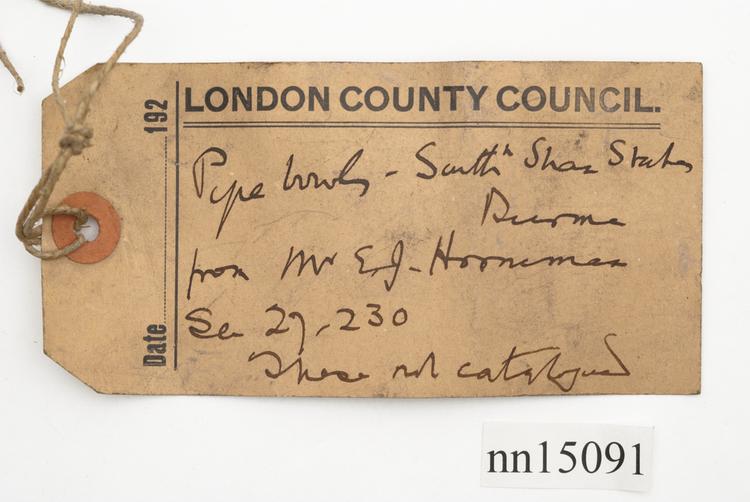 LONDON COUNTY COUNCIL.
Date 192
Pipe bowls - Southn Shan States
Burma
from Mr E.J. Horniman
See 27.230
These not catalogued
nn15091